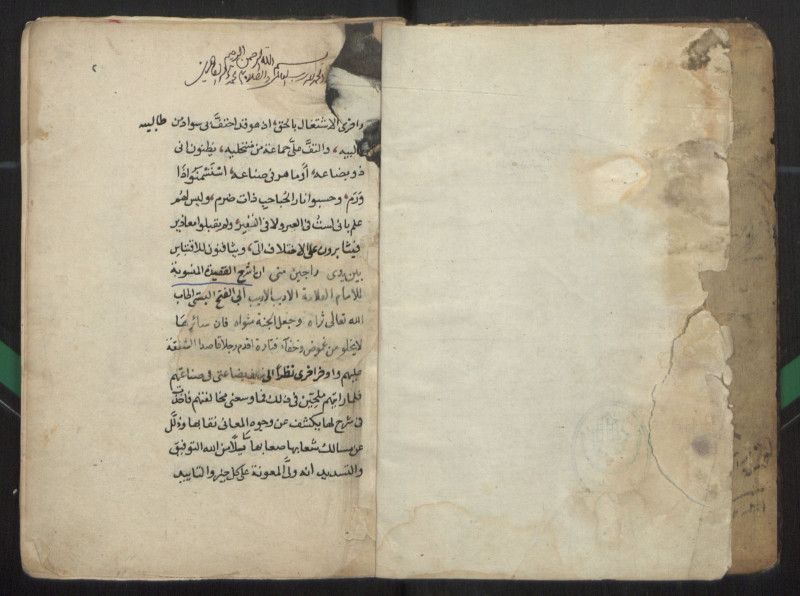 بسم الله الرحمن الرحيم
الحمد لله رب العالمين والصلوة على محمد وآله
وافرى الاشتغال بالحق اذ هو قد احتف بى سواد من طالبيه
والتف على جماعة من منتحليه، يظنون انى
ذو بضاعة، أو ماهر فى صناعة، استسمنوا ذا
ورم، وحسبوا نار الحباحب ذات ضرم، وليس لهم
علم بانى لست فى العير ولا فى النفير، ولم يقبلوا معاذير
فيثابرون على الاختلاف الىّ، ويثافنون للاقتباس
بين يدى راجين منى ان اشرح القصيدة المنسوبة
للامام العلامة الاديب الاريب ابى الفتح البستى اطاب
الله تعالى ثراه وجعل الجنة مثواه فان سائرها
لا يخلو من غموض وخفاء فتارة اقدم رجلا قاصدا الشفقة
عليهم واوخر اخرى نظرا الى بضاعتى فى صناعتهم
فلما رايتهم ملحين فى ذلك فما وسعنى مخالفتهم فاخذت
فى شرح لها يكشف عن وجوه المعانى نقابها وذلل
عن مسالك شعابها صعابها من الله التوفيق
والتسديد انه ولى المعونة على كل خير والتاييد